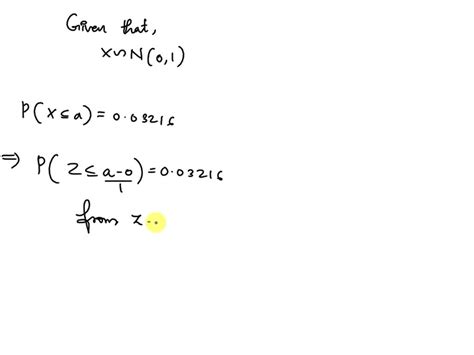 Given that,
X∽N(0,1)
P(X≤a)=0.03216
⇒ P(Z≤a-0/1)=0.03216
from z..